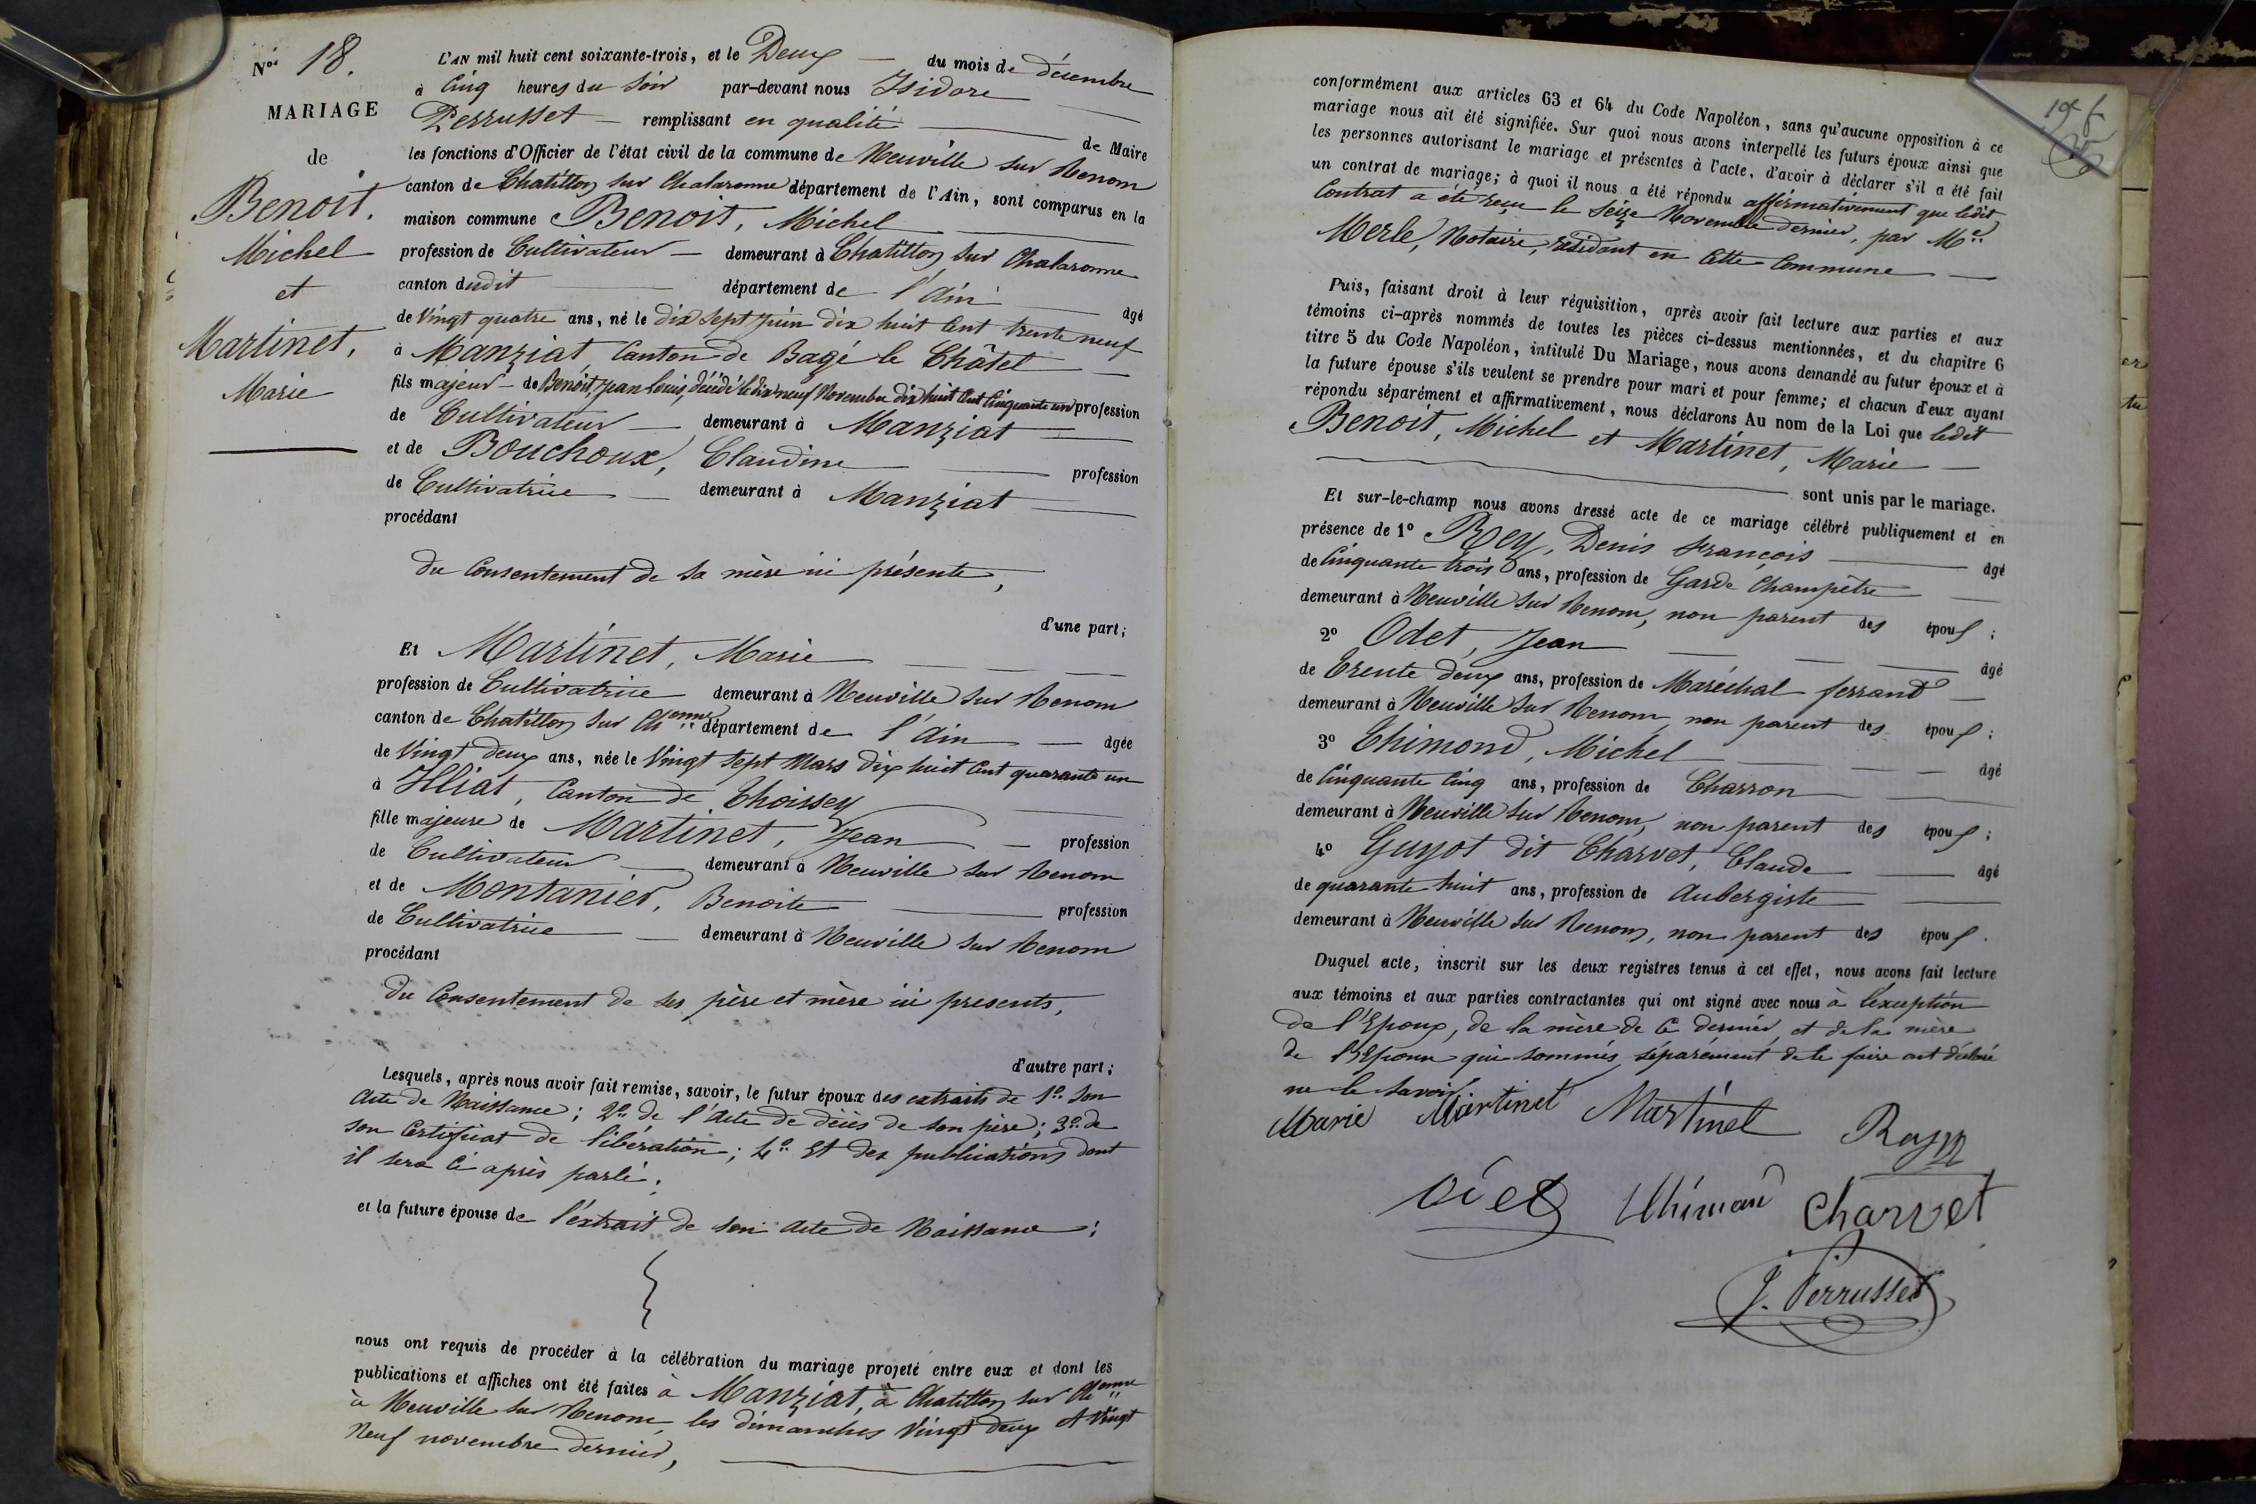 Nos 18.
MARIAGE
de
Benoit,
Michel
et
Martinet,
Marie
L'AN mil huit cent soixante-trois, et le Deux du mois de décembre
à Cinq heures du soir par-devant nous Isidore
Perrusset remplissant en qualité de Maire
les fonctions d'Officier de l'état civil de la commune de Neuville sur Renom
canton de Chatillon sur Chalaronne département de l'Ain, sont comparus en la
maison commune Benoit, Michel
profession de Cultivateur demeurant à Chatillon sur Chalaronne
canton dudit département de l'Ain âgé
de Vingt quatre ans, né le dix sept Juin dix huit Cent trente neuf
à Manziat, Canton de Bagé le Châtel
fils majeur de Benoit, Jean Louis, décédé le dix neuf Novembre dix huit Cent Cinquante un profession
de Cultivateur demeurant à Manziat
et de Bouchoux, Claudine profession
de Cultivatrice demeurant à Manziat
procédant
du Consentement de sa mère ici présente,
d'une part;
Et Martinet, Marie
profession de Cultivatrice demeurant à Neuville sur Renom
canton de Chatillon sur Chenne département de l'Ain âgée
de Vingt deux ans, née le Vingt sept Mars dix huit Cent quarante un
à Illiat, Canton de Thoissey
fille majeure de Martinet, Jean profession
de Cultivateur demeurant à Neuville sur Renom
et de Montanier, Benoite profession
de Cultivatrice demeurant à Neuville sur Renom
procédant
du Consentement de ses père et mère ici presents,
d'autre part;
Lesquels, après nous avoir fait remise, savoir, le futur époux des extraits de 1o. son
Acte de Naissance; 2o. de l'Acte de décès de son père; 3o. de
son Certificat de libération; 4o. Et des publications dont
il sera Ci après parlé;
et la future épouse de l'extrait de son Acte de Naissance;
nous ont requis de procéder à la célébration du mariage projeté entre eux et dont les
publications et affiches ont été faites à Manziat, à Chatillon sur Chenne
à Neuville sur Renom les dimanches Vingt deux et Vingt
Neuf novembre dernier,
conformément aux articles 63 et 64 du Code Napoléon, sans qu'aucune opposition à ce
mariage nous ait été signifiée. Sur quoi nous avons interpellé les futurs époux ainsi que
les personnes autorisant le mariage et présentes à l'acte, d'avoir à déclarer s'il a été fait
un contrat de mariage; à quoi il nous a été répondu affirmativement que ledit
Contrat a été reçu le seize Novembre dernier, par Me
Merle, Notaire, résidant en Cette Commune
Puis, faisant droit à leur réquisition, après avoir fait lecture aux parties et aux
témoins ci-après nommés de toutes les pièces ci-dessus mentionnées, et du chapitre 6
titre 5 du Code Napoléon, intitulé Du Mariage, nous avons demandé au futur époux et à
la future épouse s'ils veulent se prendre pour mari et pour femme; et chacun d'eux ayant
répondu séparément et affirmativement, nous déclarons Au nom de la Loi que ledit
Benoit, Michel et Martinet, Marie
sont unis par le mariage.
Et sur-le-champ nous avons dressé acte de ce mariage célébré publiquement et en
présence de 1o Rey, Denis François âgé
de Cinquante trois ans, profession de Garde Champêtre
demeurant à Neuville sur Renom, non parent des époux;
2o Odet, Jean âgé
de Trente deux ans, profession de Maréchal ferrand
demeurant à Neuville sur Renom non parent des époux;
3o Thimond, Michel âgé
de Cinquante Cinq ans, profession de Charron
demeurant à Neuville sur Renom, non parent des époux;
4o Guyot dit Charvet, Claude âgé
de quarante huit ans, profession de Aubergiste
demeurant à Neuville sur Renom, non parent des époux.
Duquel acte, inscrit sur les deux registres tenus à cet effet, nous avons fait lecture
aux témoins et aux parties contractantes qui ont signé avec nous à l'exception
de l'Epoux, de la mère de Ce dernier et de la mère
de l'Epouse qui sommés séparément de le faire ont déclaré
ne le savoir
Marie Martinet Martinet Rey
odet Thimond Charvet
J. Perrusset